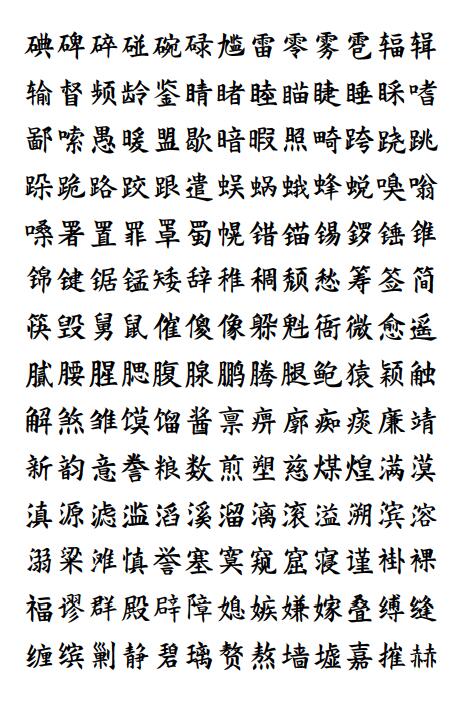 碘碑碎碰碗碌尴雷零雾雹辐辑
输督频龄鉴睛睹睦瞄睫睡睬嗜
鄙嗦愚暖盟歇暗暇照畸跨跷跳
跺跪路跤跟遣蜈蜗蛾蜂蜕嗅嗡
嗓署置罪罩蜀幌错锚锡锣锤锥
锦键锯锰矮辞稚稠颓愁筹签简
筷毁舅鼠催傻像躲魁衙微愈遥
腻腰腥腮腹腺鹏腾腿鲍猿颖触
解煞雏馍馏酱禀痹廓痴痰廉靖
新韵意誊粮数煎塑慈煤煌满漠
滇源滤滥滔溪溜漓滚溢溯滨溶
溺粱滩慎誉塞寞窥窟寝谨褂裸
福谬群殿辟障媳嫉嫌嫁叠缚缝
缠缤剿静碧璃赘熬墙墟嘉摧赫